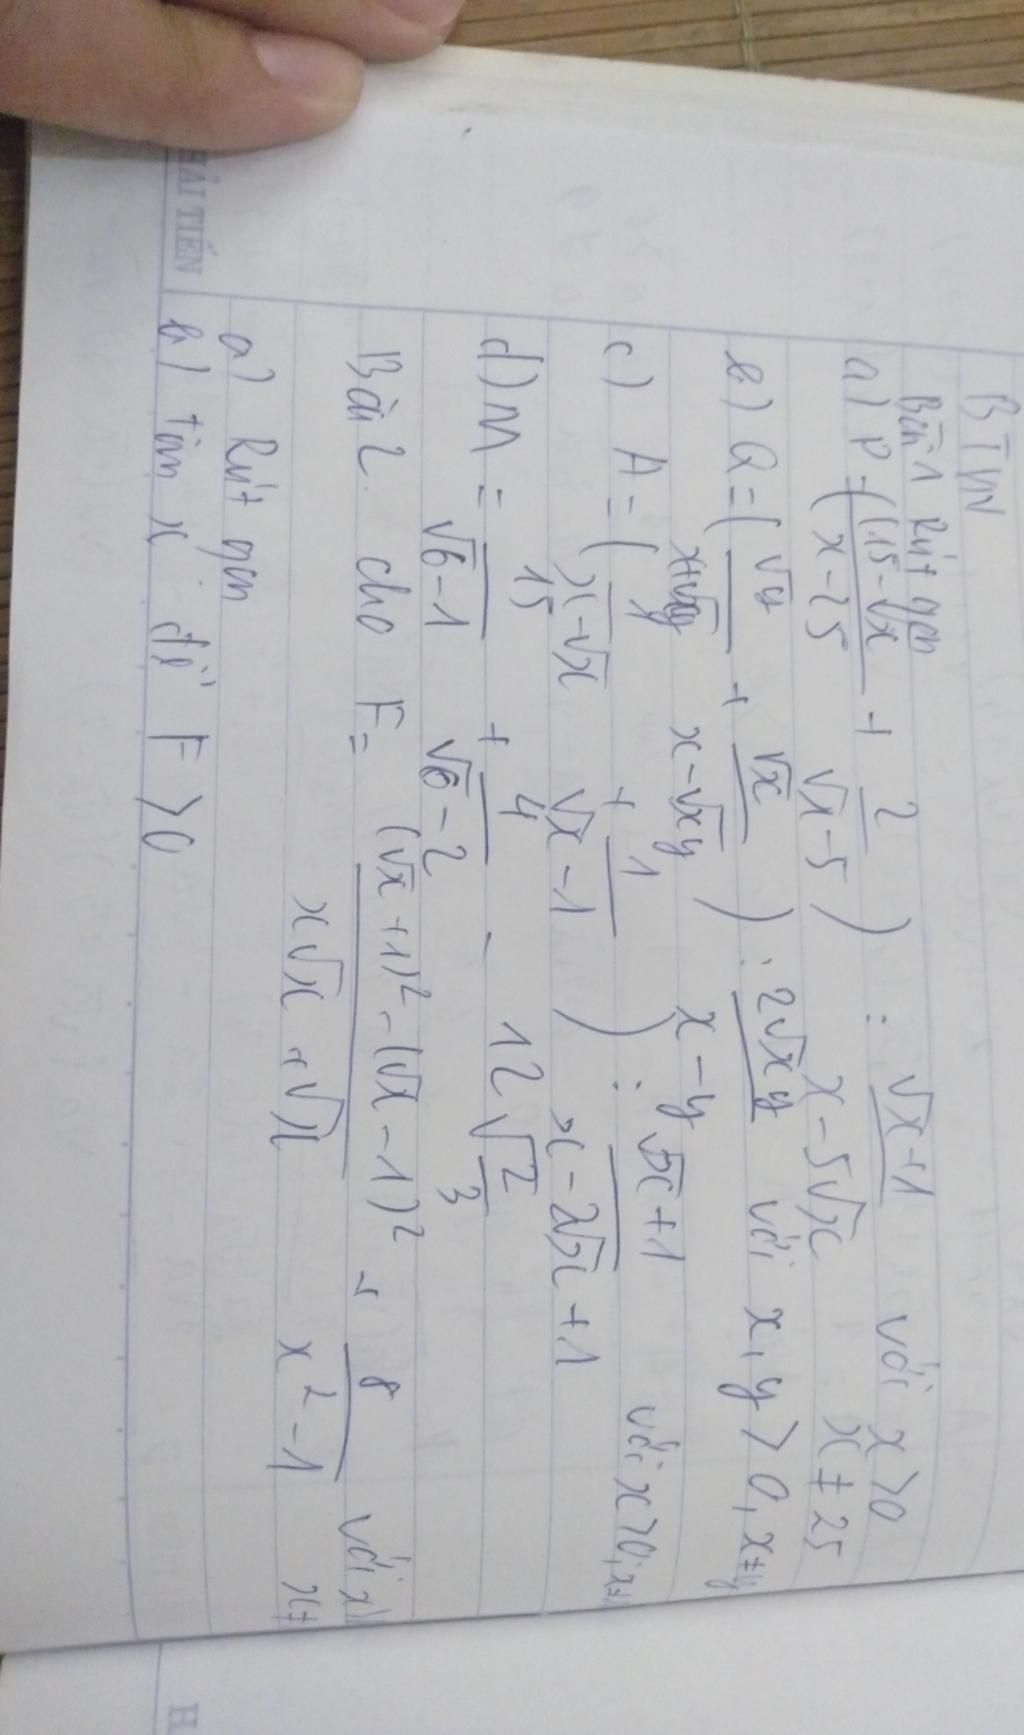 BTVN
Bài 1 Rút gọn
a) P = ((15-√x)/(x-25) + 2/(√x-5)) : (√x+1)/(x-5√x) với x>0 x≠25
b) Q = (√y/(x+√xy) + √x/(x-√xy)) : 2√xy/(x-y) với x,y>0, x≠y
c) A = (1/(x-√x) + 1/(√x-1)) : (√x+1)/(x-2√x+1) với x>0; x≠
d) M = 15/(√6-1) + 4/(√6-2) - 12√(2/3)
Bài 2. cho F = ((√x+1)²-(√x-1)²)/(x√x+√x) + 8/(x²-1) với x
x≠
a) Rút gọn
b) tìm x để F>0
HẢI TIẾN
H